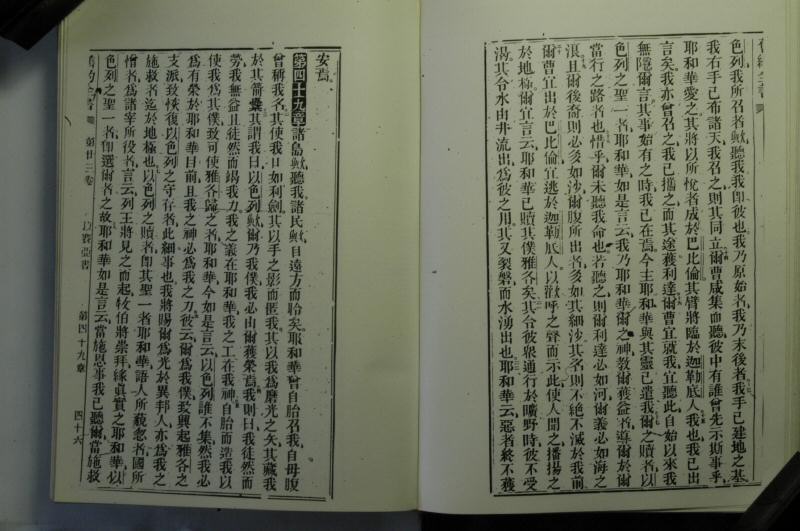 色列我所召者歟聽我我卽彼也我乃原始者我乃末後者我手已建地之基
我右手已布諸天我召之則其同立爾曹咸集而聽彼中有誰曾先示斯事乎
耶和華愛之其將以所悅者成於巴比倫其臂將臨於迦勒底人我也我已出
言矣我亦曾召之我已攜之而其途獲利達爾曹宜就我宜聽此自始以來我
無隱爾言其事始有之時我已在焉今主耶和華與其靈已遣我爾之贖者以
色列之聖一者耶和華如是言云我乃耶和華爾之神教爾獲益者導爾於爾
當行之路者也惜乎爾未聽我命也若聽之則爾利達必如河爾義必如海之
浪且爾後裔則必多如沙爾腹所出者多如其細沙其名則不絕不滅於我前
爾曹宜出於巴比倫宜逃於迦勒底人以歡呼之聲而示此使人聞之播揚之
於地極爾宜言云耶和華已贖其僕雅各矣其令彼衆通行於曠野時彼不受
渴其令水由井流出爲彼之用其又裂磐而水湧出也耶和華云惡者終不獲
安焉
第四十九章諸島歟聽我諸民歟自遠方而聆矣耶和華曾自胎召我自母腹
曾稱我名其使我口如利劍其以手之影而匿我其以我爲磨光之矢其藏我
於其箭囊其謂我曰以色列歟爾乃我僕我必由爾獲榮焉我則曰我徒然而
勞我無益且徒然而竭我力我之義在耶和華我之工在我神自胎而造我以
使我爲其僕致可使雅各歸之者耶和華今如是言云以色列誰不集然我必
爲有榮於耶和華目前且我之神必爲我之力彼云爾爲我僕致興起雅各之
支派致恢復以色列之守存者此細事也我將賜爾爲光於異邦人亦爲我之
施救者迄於地極也以色列之贖者卽其聖一者耶和華語人所藐忽者國所
憎者爲諸宰所役者言云列王將見之而起牧伯將崇拜緣眞實之耶和華以
色列之聖一者卽選爾者之故耶和華如是言云當施恩事我已聽爾當施救
第廿三卷 以賽亞書 第四十九章 四十六